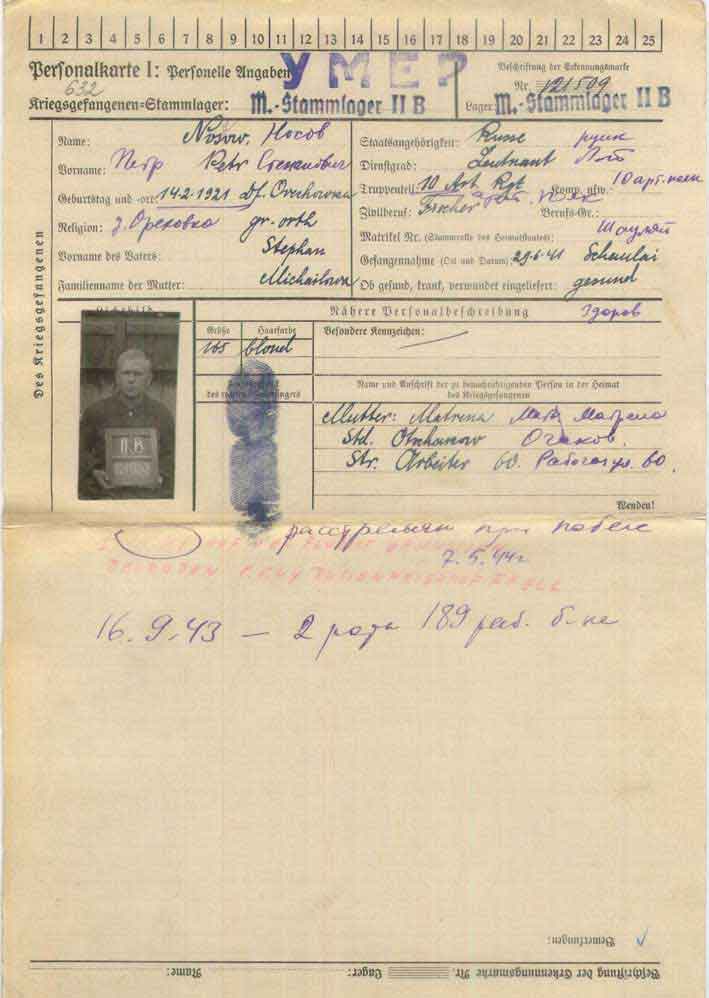 1 2 3 4 5 6 7 8 9 10 11 12 13 14 15 16 17 18 19 20 21 22 23 24 25
Personalkarte I: Personelle Angaben
УМЕР
Beschriftung der Erkennungsmarke
632
Nr. 121509
Kriegsgefangenen-Stammlager: M.-Stammlager II B
Lager: M.-Stammlager II B
Des Kriegsgefangenen
Name: Nosow, Носов
Vorname: Петр Petr
Geburtstag und -ort: 14.2.1921 Df. Orechowka
Religion: д. Ореховка gr. orth
Vorname des Vaters: Stephan
Familienname der Mutter: Michailowa
Staatsangehörigkeit: Russe русск
Dienstgrad: Leutnant Л-т
Truppenteil: 10 Art. Rgt Komp. usw.: 10 арт. полк
Zivilberuf: Fischer Berufs-Gr.:
Matrikel Nr. (Stammrolle des Heimatstaates): Шауляй
Gefangennahme (Ort und Datum): 29.6.41 Schaulai
Ob gesund, krank, verwundet eingeliefert: gesund
Здоров
Lichtbild
Nähere Personalbeschreibung
Größe Haarfarbe
165 blond
Besondere Kennzeichen:
II B
Fingerabdruck
des rechten Zeigefingers
Name und Anschrift der zu benachrichtigenden Person in der Heimat
des Kriegsgefangenen
Mutter: Matrena Мать Матрена
Очаков.
Str. Arbeiter 60. Рабочая ул. 60.
Wenden!
расстрелян при побеге
7.5.44г
16.9.43 – 2 рота 189 раб. б-на
Bemerkungen:
Beschriftung der Erkennungsmarke Nr. Lager: Name: